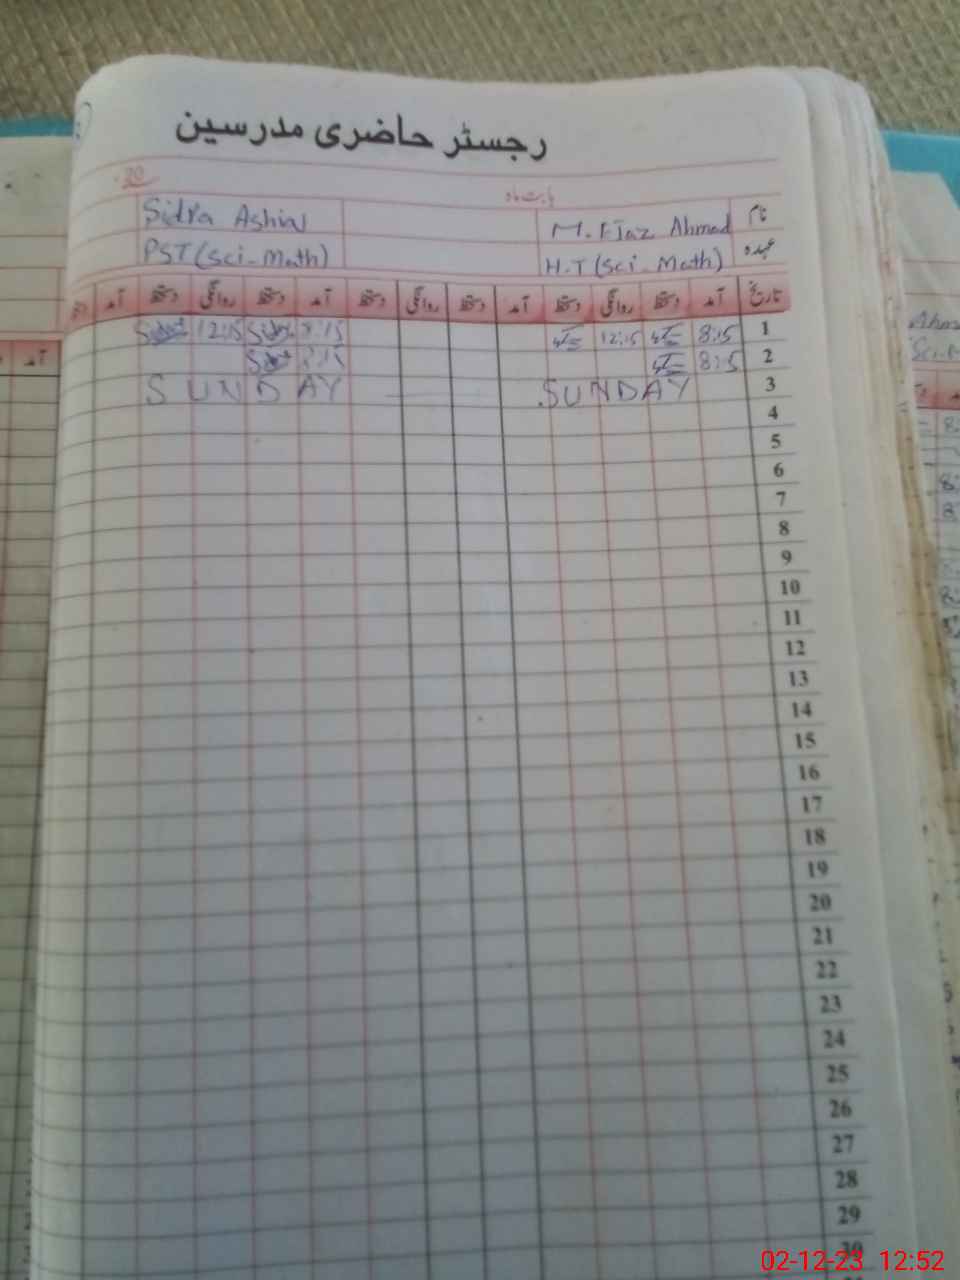 رجسٹر حاضری مدرسین
20
بابت ماہ
نام M. Ejaz Ahmad Sidra Ashraf
عہدہ H.T (Sci. Math) PST (Sci-Math)
تاریخ آمد دستخط روانگی دستخط آمد دستخط روانگی دستخط آمد دستخط روانگی دستخط آمد
1 8:15 12:15 8:15 12:15
2 8:15 8:15
3 SUNDAY SUNDAY
4
5
6
7
8
9
10
11
12
13
14
15
16
17
18
19
20
21
22
23
24
25
26
27
28
29
30
02-12-23 12:52